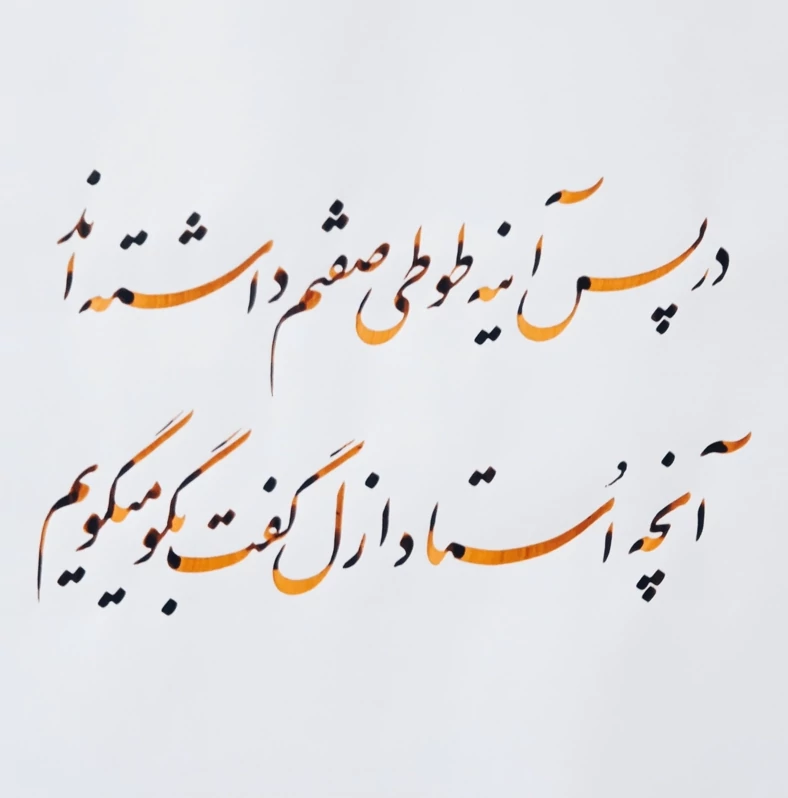 در پس آینه طوطی صفتم داشته‌اند
آنچه اُستاد ازل گفت بگو میگویم